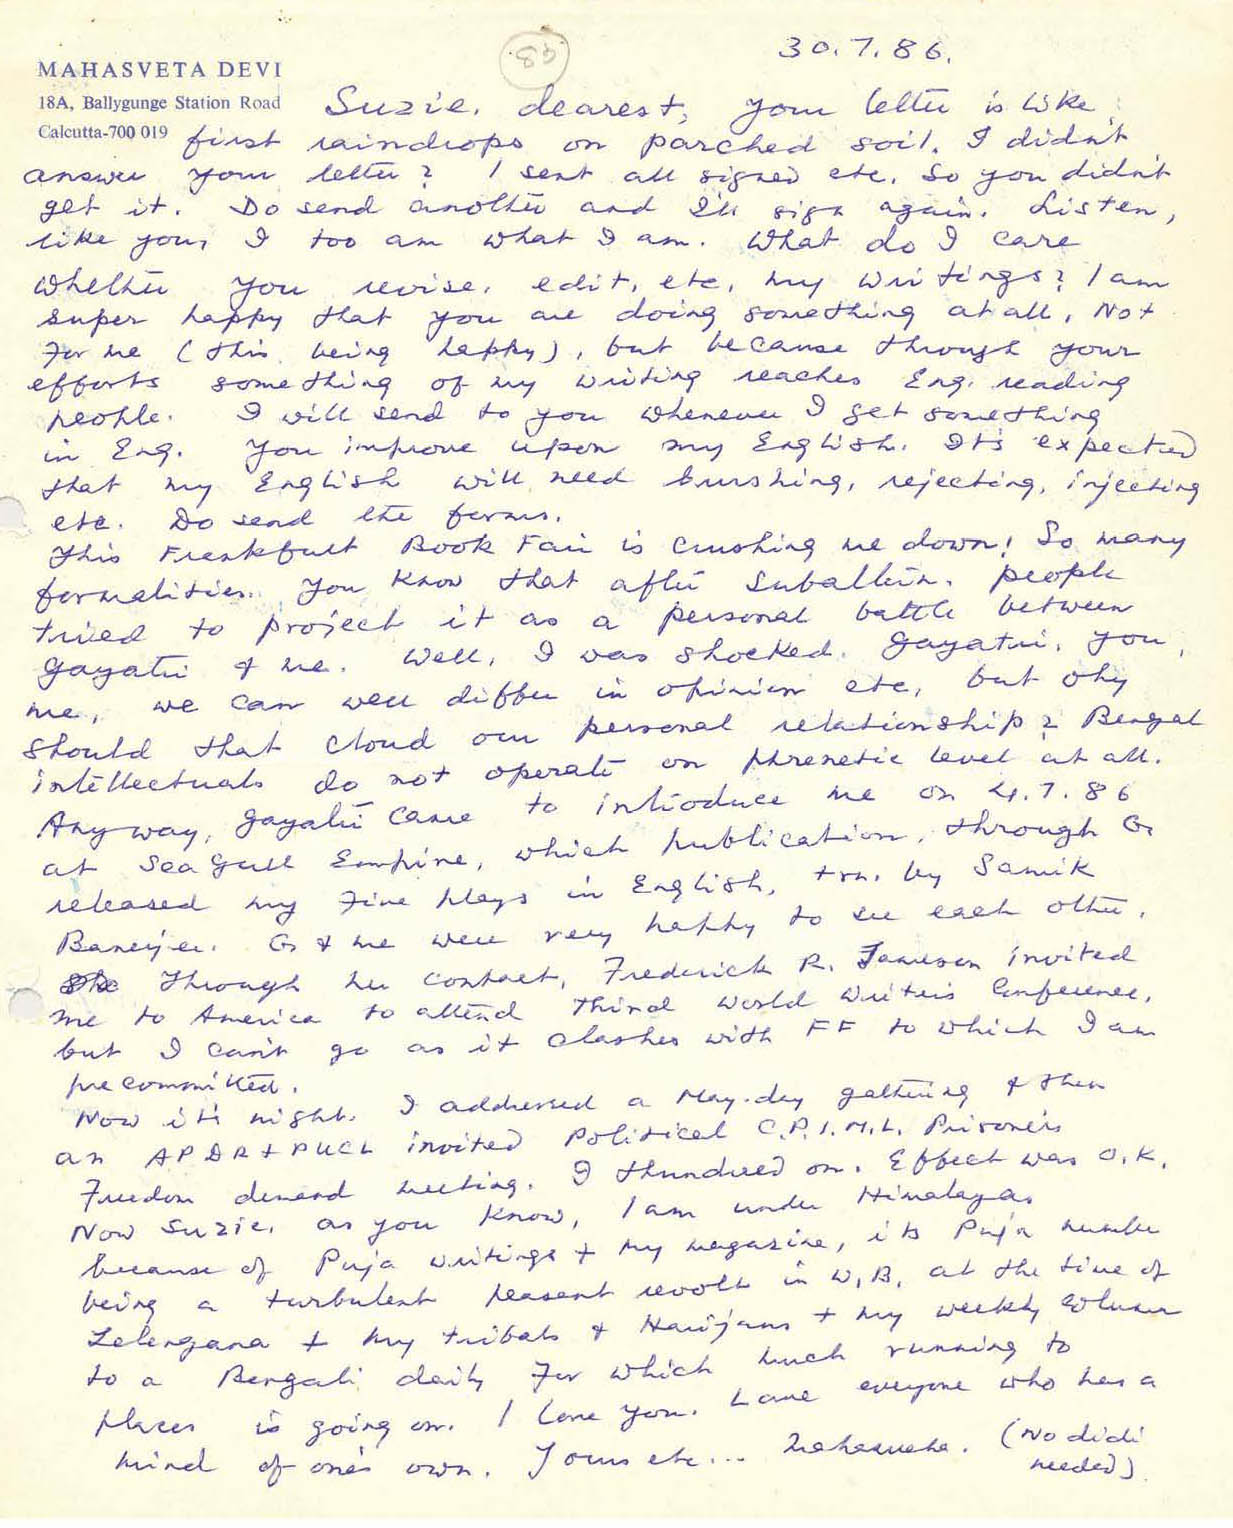 30.7.86.
85
MAHASVETA DEVI
18A, Ballygunge Station Road
Calcutta-700 019
Suzie, dearest, your letter is like
first raindrops on parched soil. I didn't
answer your letter? I sent all signed etc. So you didn't
get it. Do send another and I'll sign again. Listen,
like you, I too am what I am. What do I care
whether you revise, edit, etc, my writings? I am
super happy that you are doing something at all. Not
for me (this being happy), but because through your
efforts something of my writing reaches Eng. reading
people. I will send to you whenever I get something
in Eng. You improve upon my English. It's expected
that my English will need burshing, rejecting, injecting
etc. Do send the forms.
This Frankfurt Book Fair is crushing me down! So many
formalities. You know that after Subaltern, people
tried to project it as a personal battle between
Gayatri & me. Well, I was shocked. Gayatri, you,
me, we can well differ in opinion etc, but why
should that cloud our personal relationship? Bengal
intellectuals do not operate on phrenetic level at all.
Anyway, Gayatri came to introduce me on 4.7.86
at Seagull Empire, which publication, through G
released my Five Plays in English, trn. by Samik
Banerjee. G & me were very happy to see each other.
Through her contact, Frederick R. Jameson invited
me to America to attend Third World Writers Conference,
but I can't go as it clashes with FF to which I am
precommitted.
Now it's night. I addressed a May-day gathering & then
an APDR + PUCL invited Political C.P.I.M.L. Prisoners
Freedom demand meeting. I thundered on. Effect was O.K.
Now Suzie, as you know, I am under Himalayas
because of Puja writings + my magazine, its Puja number
being a turbulent peasant revolt in W.B. at the time of
Telengana + my tribals & Harijans + my weekly column
to a Bengali daily for which much running to
places is going on. I love you. Love everyone who has a
mind of one's own. Yours etc... Mahasveta. (No didi
needed)